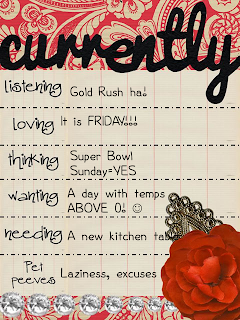 currently
listening Gold Rush ha!
loving It is FRIDAY!!!!
thinking Super Bowl
Sunday=YES
wanting A day with temps
ABOVE 0! ☺
needing A new kitchen table
Pet
peeves Laziness, excuses